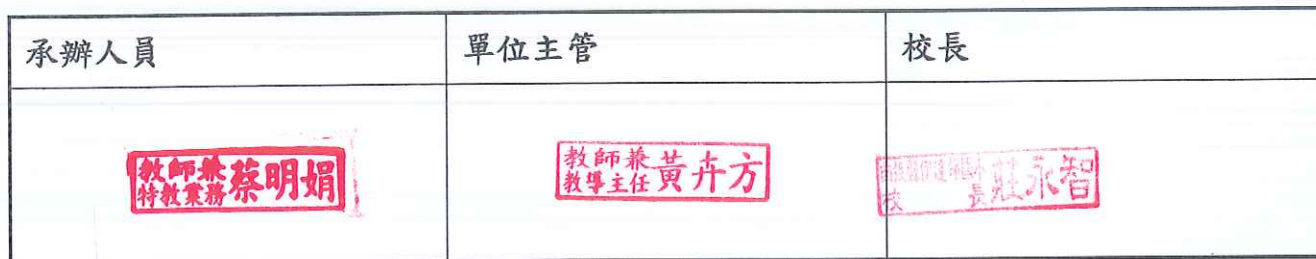 承辦人員
單位主管
校長
教師兼
特教業務
蔡明娟
教師兼
教導主任
黃卉方
校 長
莊永智